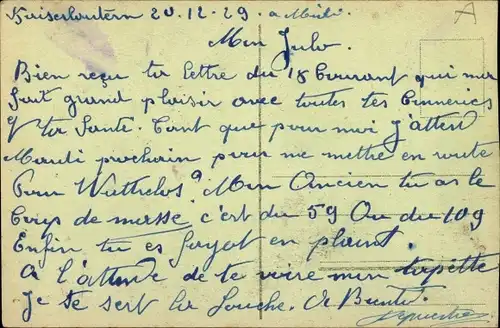 Kaiserlautern 20-12-29 a Midi
A
Mon Julo.
Bien reçu ta lettre du 18 Courant qui me
fait grand plaisir avec toutes tes Conneries
et ta Santé. Tant que pour moi j'attend
Mardi prochain pour me mettre en route
Pour Wattrelos. Mon Ancien tu as le
Coup de masse c'est du 59 Ou du 109
Enfin tu es fayot en plaint.
A l'attende de te voire mon tapette
Je te sert la Louche. A Bientot.